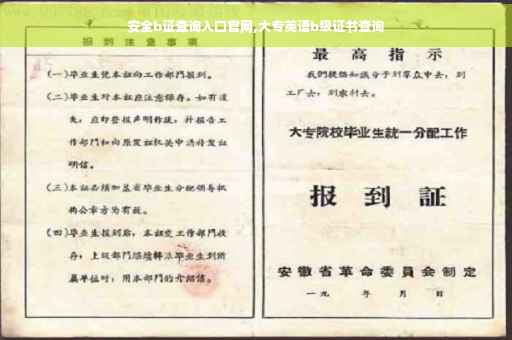 安全b证查询入口官网,大专英语b级证书查询
报到注意事项
(一)毕业生凭本证向工作部门报到。
(二)毕业生对本证应注意保存。如有遗
失,应即登报声明作废,并报告工
作部门和向原发证机关申请补发证
明信。
(三)本证必须加盖省毕业生分配领导机
构公章方为有效。
(四)毕业生报到后,本证交工作部门收
存;上级部门
毕业生到所
属单位时,用本部门的介绍信。
最高指示
我们提倡知识分子到群众中去,到
工厂去,到农村去。
大专院校毕业生統一分配工作
报到証
安徽省革命委員会制定
一九 年 月 日